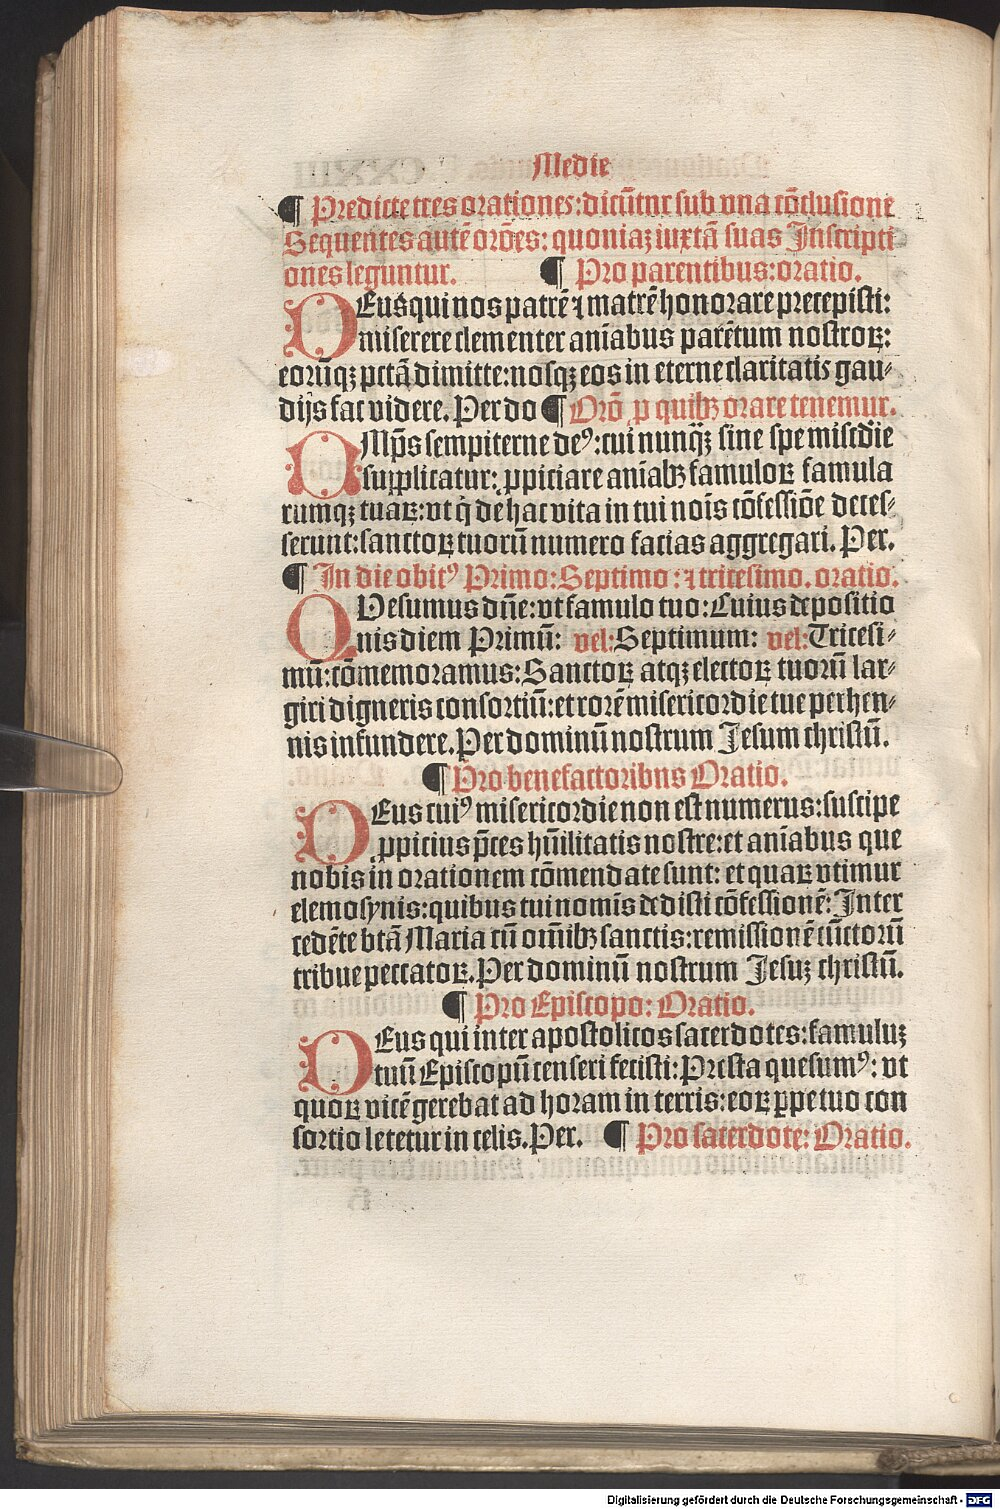 Medie
¶ Predicte tres orationes: dicūtur sub vna cōclusione
Sequentes autē orōes: quoniaꝫ iuxtā suas Inscripti
ones leguntur. ¶ Pro parentibus: oratio.
DEus qui nos patrē ⁊ matrē honorare precepisti:
miserere clementer aniābus parētum nostroꝝ:
eorūqꝫ pctā dimitte: nosqꝫ eos in eterne claritatis gau⸗
dijs fac videre. Per do ¶ Orō ꝓ quibꝫ orare tenemur.
OMp̄s sempiterne deꝰ: cui nunqꝫ̄ sine spe misc̄die
supplicatur: ꝓpiciare aniābꝫ famuloꝝ famula
rumqꝫ tuaꝝ: vt q̄ de hac vita in tui nois̄ cōfessiōe deces⸗
serunt: sanctoꝝ tuorū numero facias aggregari. Per.
¶ In die obitꝰ Primo: Septimo: ⁊ tricesimo. oratio.
QVesumus dn̄e: vt famulo tuo: Cuius depositio
nis diem Primū: vel: Septimum: vel: Tricesi⸗
mū: cōmemoramus: Sanctoꝝ atqꝫ electoꝝ tuorū lar⸗
giri digneris consortiū: et rorē misericordie tue perhen⸗
nis infundere. Per dominū nostrum Jesum christū.
¶ Pro benefactoribus Oratio.
DEus cuiꝰ misericordie non est numerus: suscipe
ꝓpicius p̄ces hūilitatis nostre: et aniābus que
nobis in orationem cōmendate sunt: et quaꝝ vtimur
elemosynis: quibus tui nomīs dedisti cōfessionē: Inter
cedēte btā Maria cū om̄ibꝫ sanctis: remissionē cūctorū
tribue peccatoꝝ. Per dominū nostrum Jesuꝫ christū.
¶ Pro Episcopo: Oratio.
DEus qui inter apostolicos sacerdotes: famuluꝫ
tuū Episcopū censeri fecisti: Presta quesumꝰ: vt
quoꝝ vicē gerebat ad horam in terris: eoꝝ ꝑpetuo con
sortio letetur in celis. Per. ¶ Pro sacerdote: Oratio.
Digitalisierung gefördert durch die Deutsche Forschungsgemeinschaft - DFG